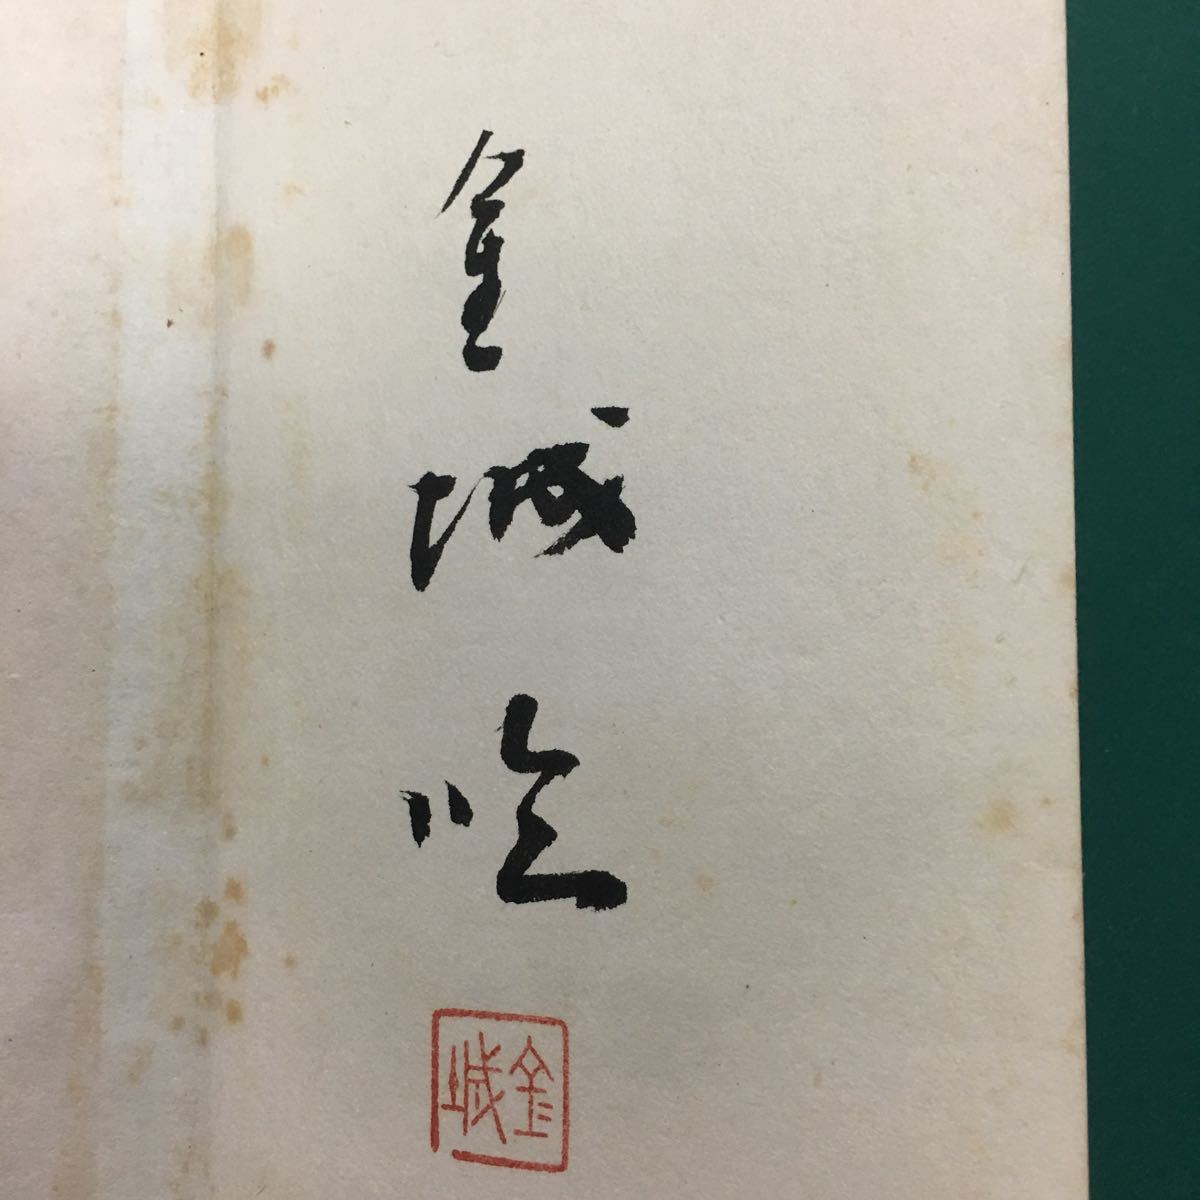 金城臨
金城